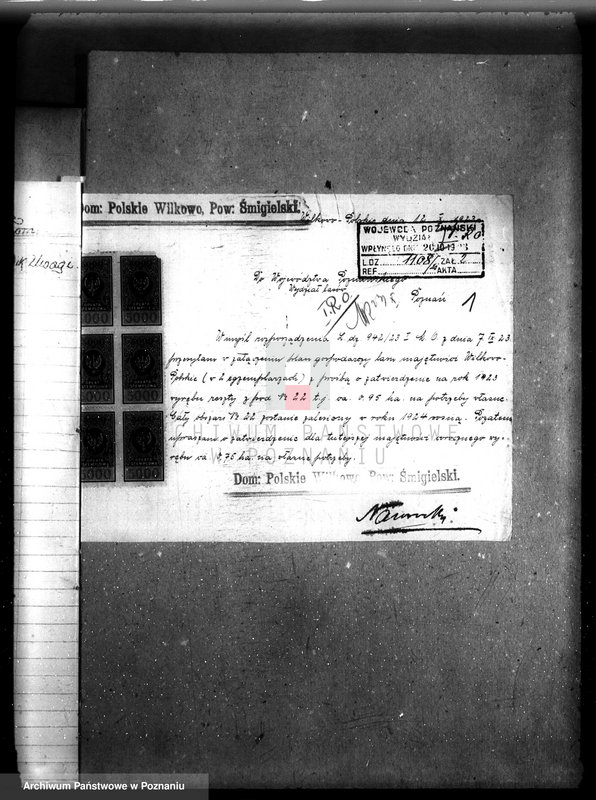 Dom: Polskie Wilkowo, Pow: Śmigielski.
Wilkowo-Polskie dnia 12 X 1923
WOJEWODA POZNAŃSKI
WYDZIAŁ I.R.O.
WPŁYNĘŁO DNIA 20.10.19
L.DZ. 1108/ ZAŁ. 2
REF. AKTA
Do Województwa Poznańskiego
Wydział lasów
I.R.O.
Poznań
1
uwagi
W myśl rozporządzenia L. dz. 942/23 I b. O z dnia 7. IX 23
przesyłam w załączeniu plan gospodarczy lasu majętności Wilkowo-
Polskie (w 2 egzemplarzach) z prośbą o zatwierdzenie na rok 1923
wyrębu reszty z pod № 22 t.j. ca. 0.95 ha. na potrzeby własne.
Cały obszar № 22 zostanie zalesiony w roku 1924 wiosną. Pozatem
upraszam o zatwierdzenie dla tutejszej majętności corocznego wy-
rębu ca 0.75 ha na własne potrzeby.
ARCHIWUM PAŃSTWOWE
W POZNANIU
Dom: Polskie Wilkowo, Pow: Śmigielski.
5000
5000
5000
5000
Archiwum Państwowe w Poznaniu